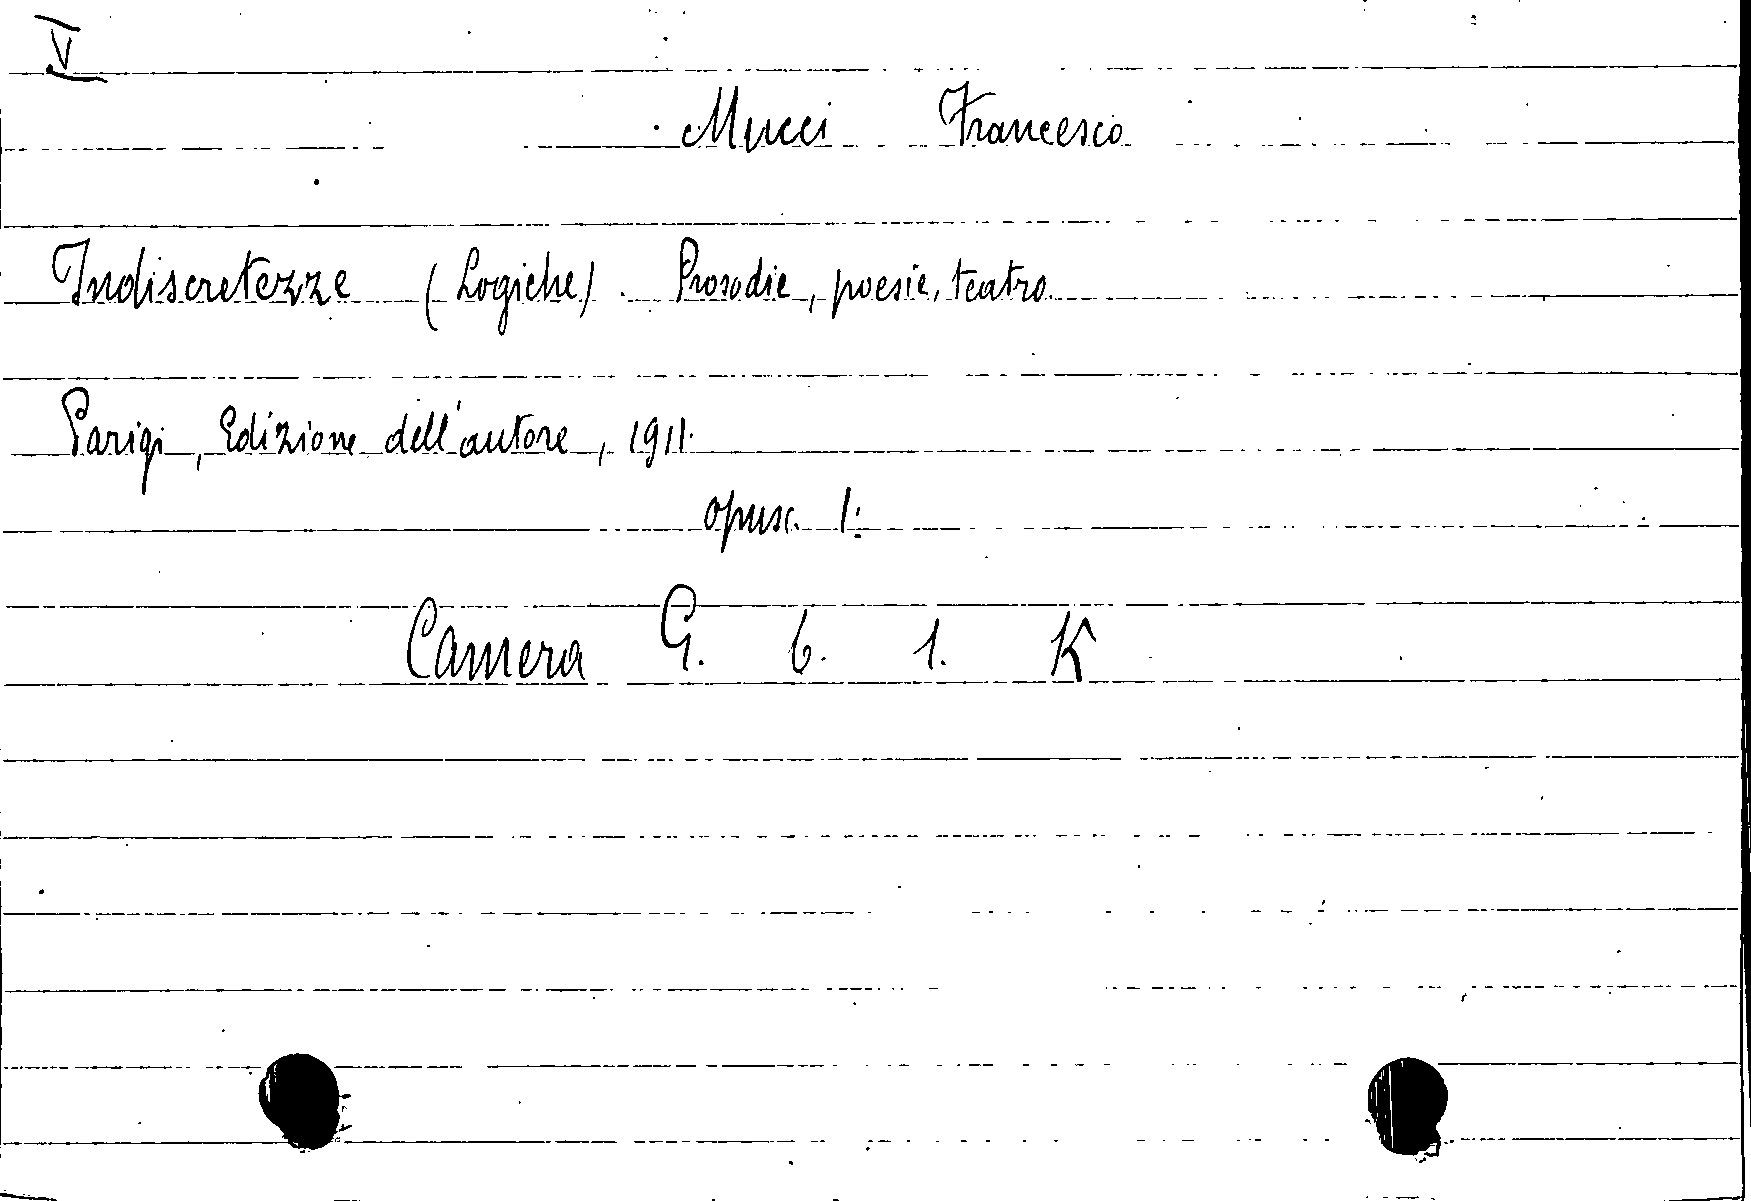 V
Mucci Francesco
Indiscretezze (Logiche). Prosodie, poesie, teatro.
Parigi, Edizione dell'autore, 1911.
opusc. 1:
Camera G. 6. 1. K